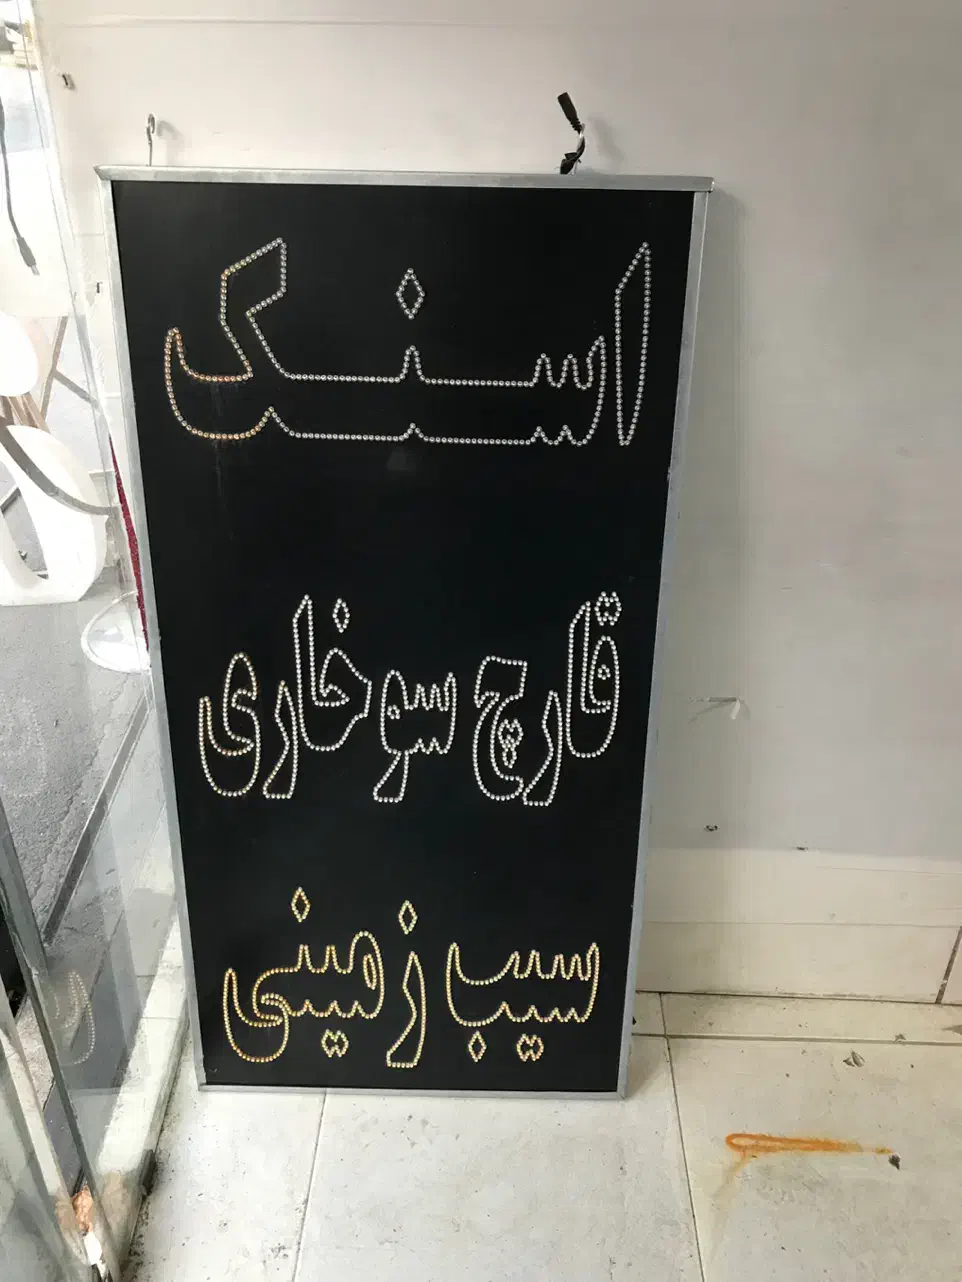 اسنک
قارچ سوخاری
سیب زمینی